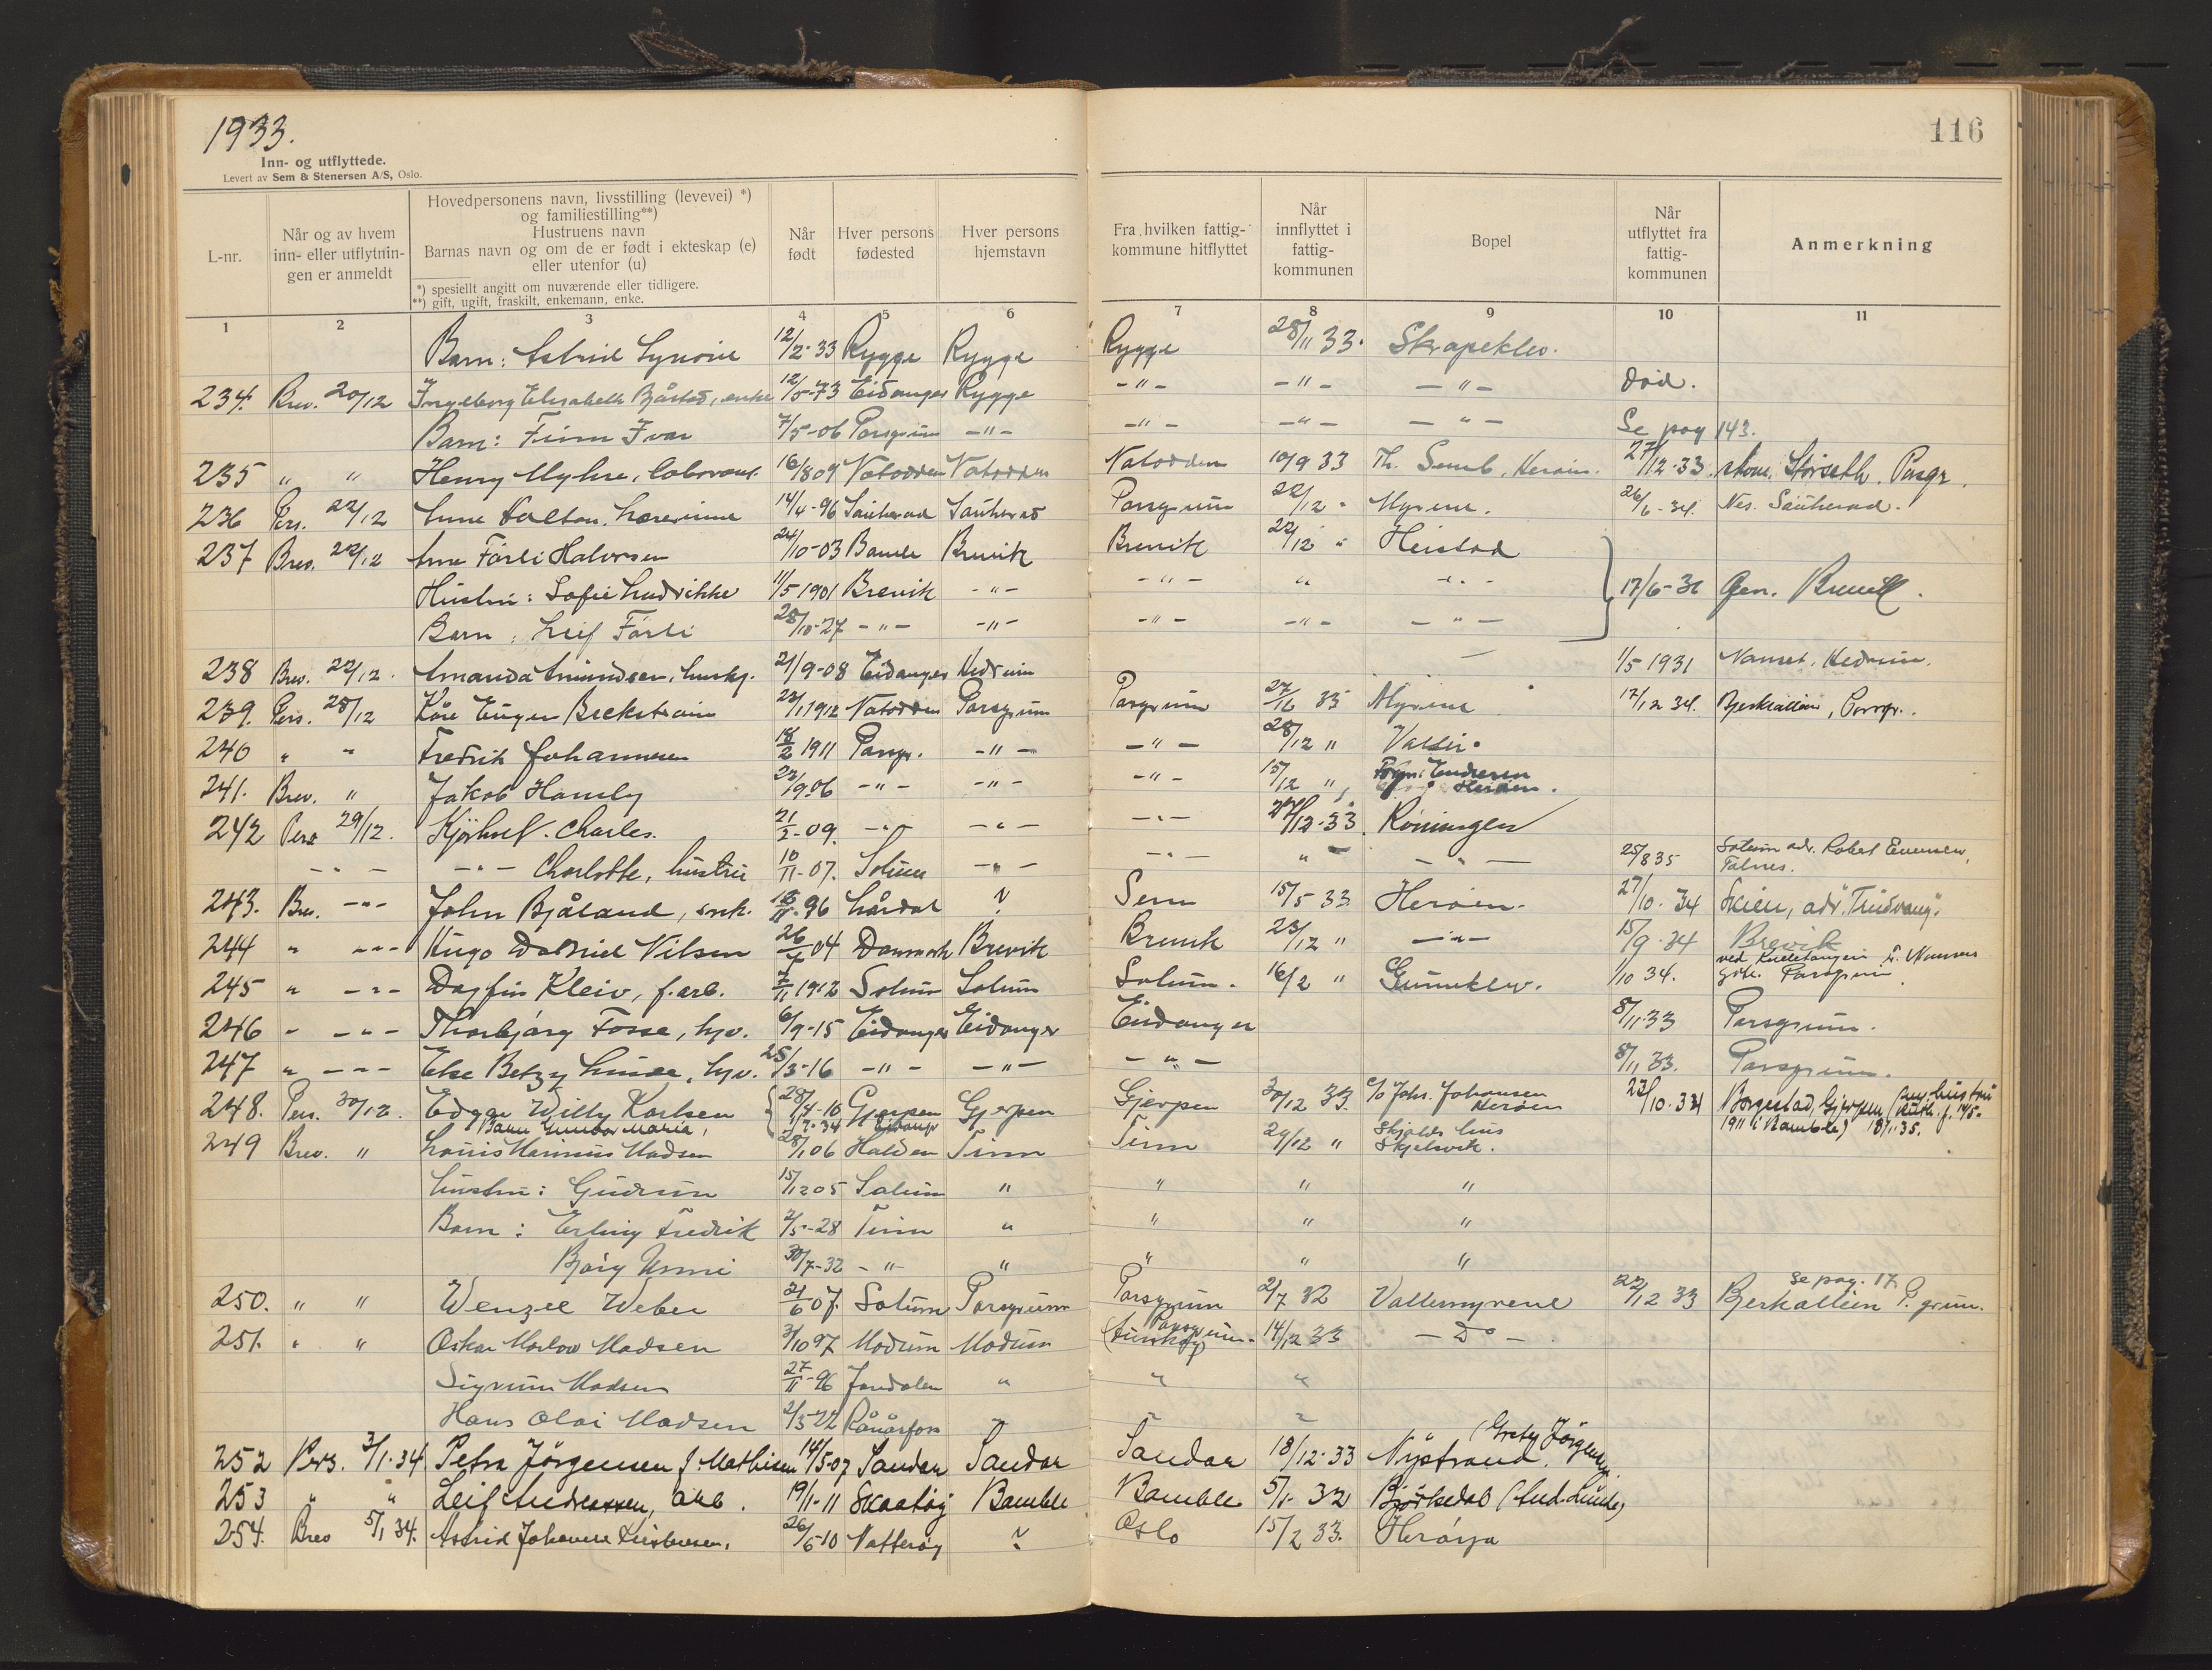 1933.
116
Inn- og utflyttede.
Levert av Sem & Stenersen A/S, Oslo.
L-nr.
Når og av hvem inn- eller utflytnin-gen er anmeldt
Hovedpersonens navn, livsstilling (levevei) *)
og familiestilling**)
Hustruens navn
Barnas navn og om de er født i ekteskap (e)
eller utenfor (u)
*) spesiellt angitt om nuværende eller tidligere.
**) gift, ugift, fraskilt, enkemann, enke.
Når født
Hver persons fødested
Hver persons hjemstavn
Fra hvilken fattig-kommune hitflyttet
Når innflyttet i fattig-kommunen
Bopel
Når utflyttet fra fattig-kommunen
Anmerkning
1 2 3 4 5 6 7 8 9 10 11
Barn: Astrid Synøve 12/2-33 Rygge Rygge Rygge 28/11 33. Skrapeklev.
234. Brev. 20/12 Ingeborg Elisabeth Bjåstad, enke 12/5-73 Eidanger Rygge -"- -"- -"- død.
Barn: Finn Ivar 7/5-06 Porsgrunn -"- -"- -"- -"- Se pag 143.
235 " " Henry Myhre, laborant. 16/8 09 Notodden Notodden Notodden 10/9 33 Th. Semb, Herøen. 27/12-33 Størseth. Porsgr.
236 Pers. 22/12 lærerinne 14/4-96 Sauherad Sauherad Porsgrunn 22/12 " Myrene. 26/6-34. Nes. Sauherad.
237 Brev. 22/12 Arne Førli Halvorsen 24/10-03 Bamle Brevik Brevik 22/12 " Heistad
Hustru: Sofie Ludvikke 11/5 1901 Brevik -"- -"- " -"- 17/6-36 Brevik.
Barn: Leif Førli 28/10-27 -"- -"- -"- -"- -"-
238 Brev. 22/12. Amanda Amundsen, hushj. 21/9-08 Eidanger Hedrum 1/5 1931 Nanset, Hedrum.
239. Pers. 28/12 Kåre Eugen Brekstrøm 23/1 1912 Notodden Porsgrunn Porsgrunn 33 Myrene 17/12 34. Bjerkealleen, Porsgr.
240 " " Fredrik Johannesen 18/2 1911 Porsgr. -"- -"- 28/12 " Valler.
241. Brev. " Jakob Hansby 1906 -"- -"- -"- 15/12 " Endresen Herøen.
242 Pers 29/12. Kjørholt. Charles. 21/2-09. -"- -"- -"- 12-33. Røningen
-"- -"- Charlotte, hustru 10/11-07. Solum -"- -"- " -"- 25/8 35 Solum adr. Robert Evensen, Falnes.
243. Brev. -"- John Bjåland, snek. 96 Lårdal ? Sem 15/5 33. Herøen. 27/10. 34 Skien, adr. "Trudvang".
244 " -"- Hugo Nilsen 26/ 04 Danmark Brevik Brevik 23/12 " -"- 15/9. 34 Brevik
245 " -"- Dagfin Kleiv, f.arb. /11 1912 Solum Solum Solum. 16/2 " Gunneklev. 1/10 34. ved Porsgrunn
246 " -"- Thorbjørg Fosse, hjv. 6/9-15 Eidanger Eidanger Eidanger 8/11-33 Porsgrunn.
247 " -"- Else Betzy Linde, hjv. 25/3-16 -"- -"- -"- 8/11 33. Porsgrunn.
248. Pers. 30/12. Edgar Willy Karlsen 28/4-10 Gjerpen Gjerpen Gjerpen 30/12 33. c/o Johs. Johansen Herøen 23/10-34 Borgestad, Gjerpen
Barn Gunbor Maria, 1/7-34 Eidanger 1911 i Bamble) 18/1-35.
249 Brev. " Louis Marinius Madsen 28/1 06 Halden Tinn Tinn 29/12 " Skjolds hus Skjelsvik.
hustru: Gudrun 15/12 05 Solum " " " "
Barn: Erling Fredrik 2/5-28 Tinn " " " "
Bjørg Unni 30/7-32 -"- " " " "
250. " " Wenzel Weber 21/6 07. Solum Porsgrunn Porsgrunn 2/7 32 Vallermyrene 22/12 33 Se pag. 17. Bjerkalleen P.grunn.
251. " " Oskar Marlow Madsen 3/10 97 Modum Modum Porsgrunn 14/12 33 -Do-
Sigrunn Madsen 27/11-96 Jondalen " " "
Hans Olai Madsen 2/5-22 Rånåsfoss " " "
252 Pers. 3/1-34 Petra Jørgensen f. Mathisen 14/5-07 Sandar Sandar Sandar 18/12-33 Nystrand. (Jørgensen)
253 " " Leif Andreassen, arb. 19/1-11 Skaatøy Bamble Bamble 5/1- 32 Bjørkedal (And. Linde)
254. Brev 5/1 34. Astrid Johanne Kristensen. 26/6-10 Nøtterøy ? Oslo 15/2 33. Herøya